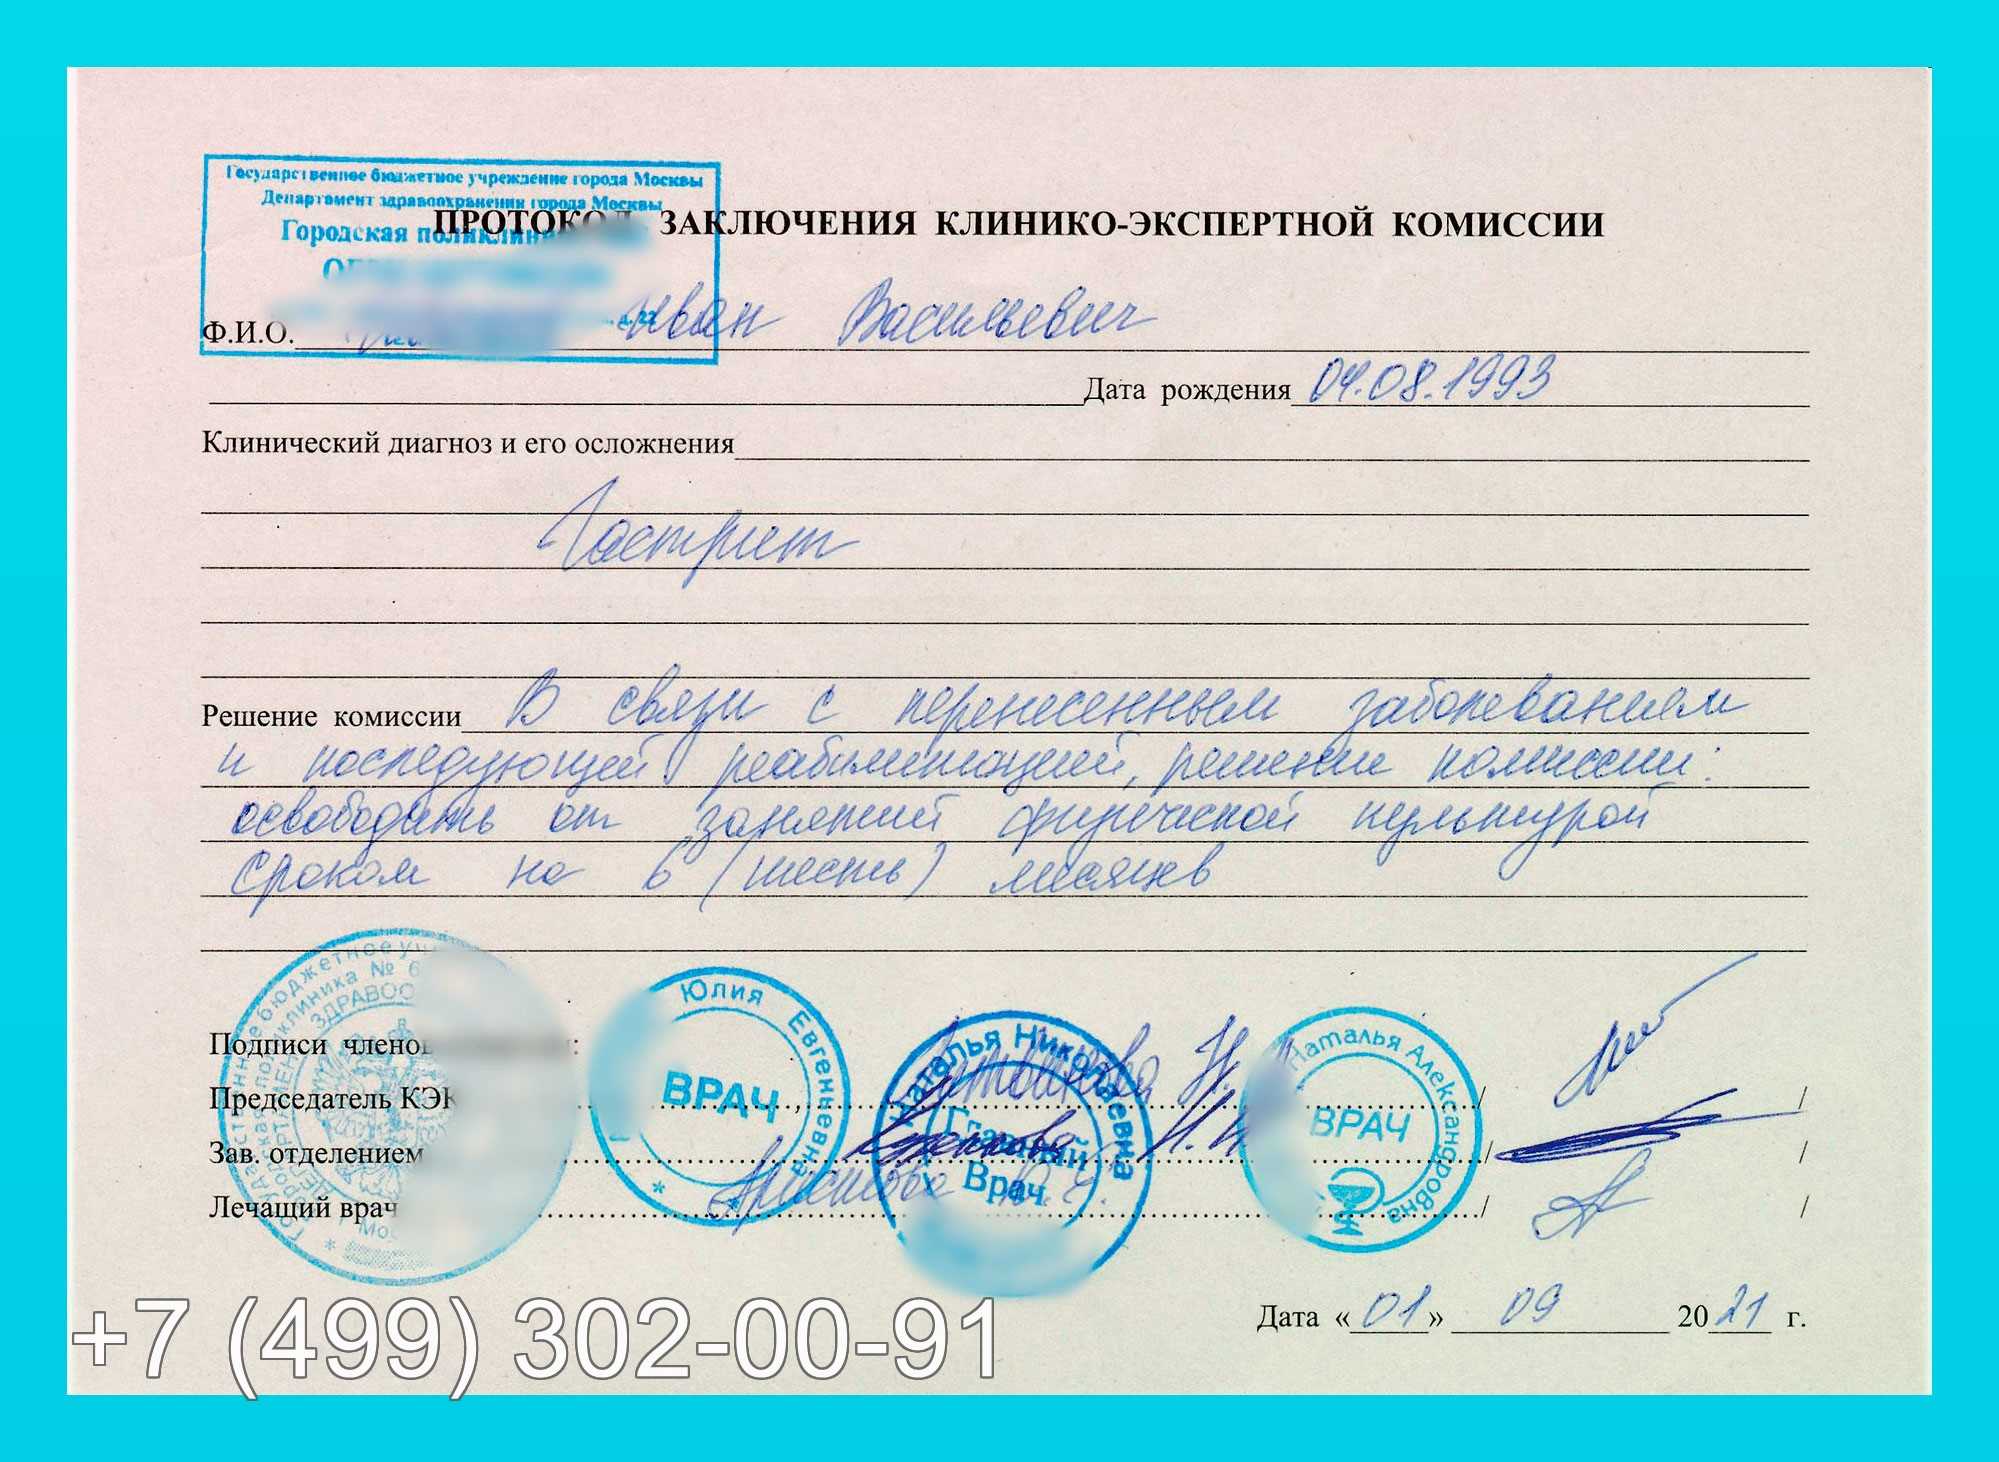 Государственное бюджетное учреждение города Москвы
Департамент здравоохранения города Москвы
Городская
ПРОТОКОЛ ЗАКЛЮЧЕНИЯ КЛИНИКО-ЭКСПЕРТНОЙ КОМИССИИ
д. 22
Ф.И.О. Иван Васильевич
Дата рождения 04.08.1993
Клинический диагноз и его осложнения
Гастрит
Решение комиссии В связи с перенесенным заболеванием
и последующей реабилитацией, решение комиссии:
освободить от занятий физической культурой
сроком на 6 (шесть) месяцев
Подписи
Председатель
Зав. отделением
Лечащий врач
Юлия Евгеньевна
ВРАЧ
Наталья Николаевна
Главный
Врач
Наталья Александровна
ВРАЧ
Дата «01» 09 2021 г.
+7 (499) 302-00-91